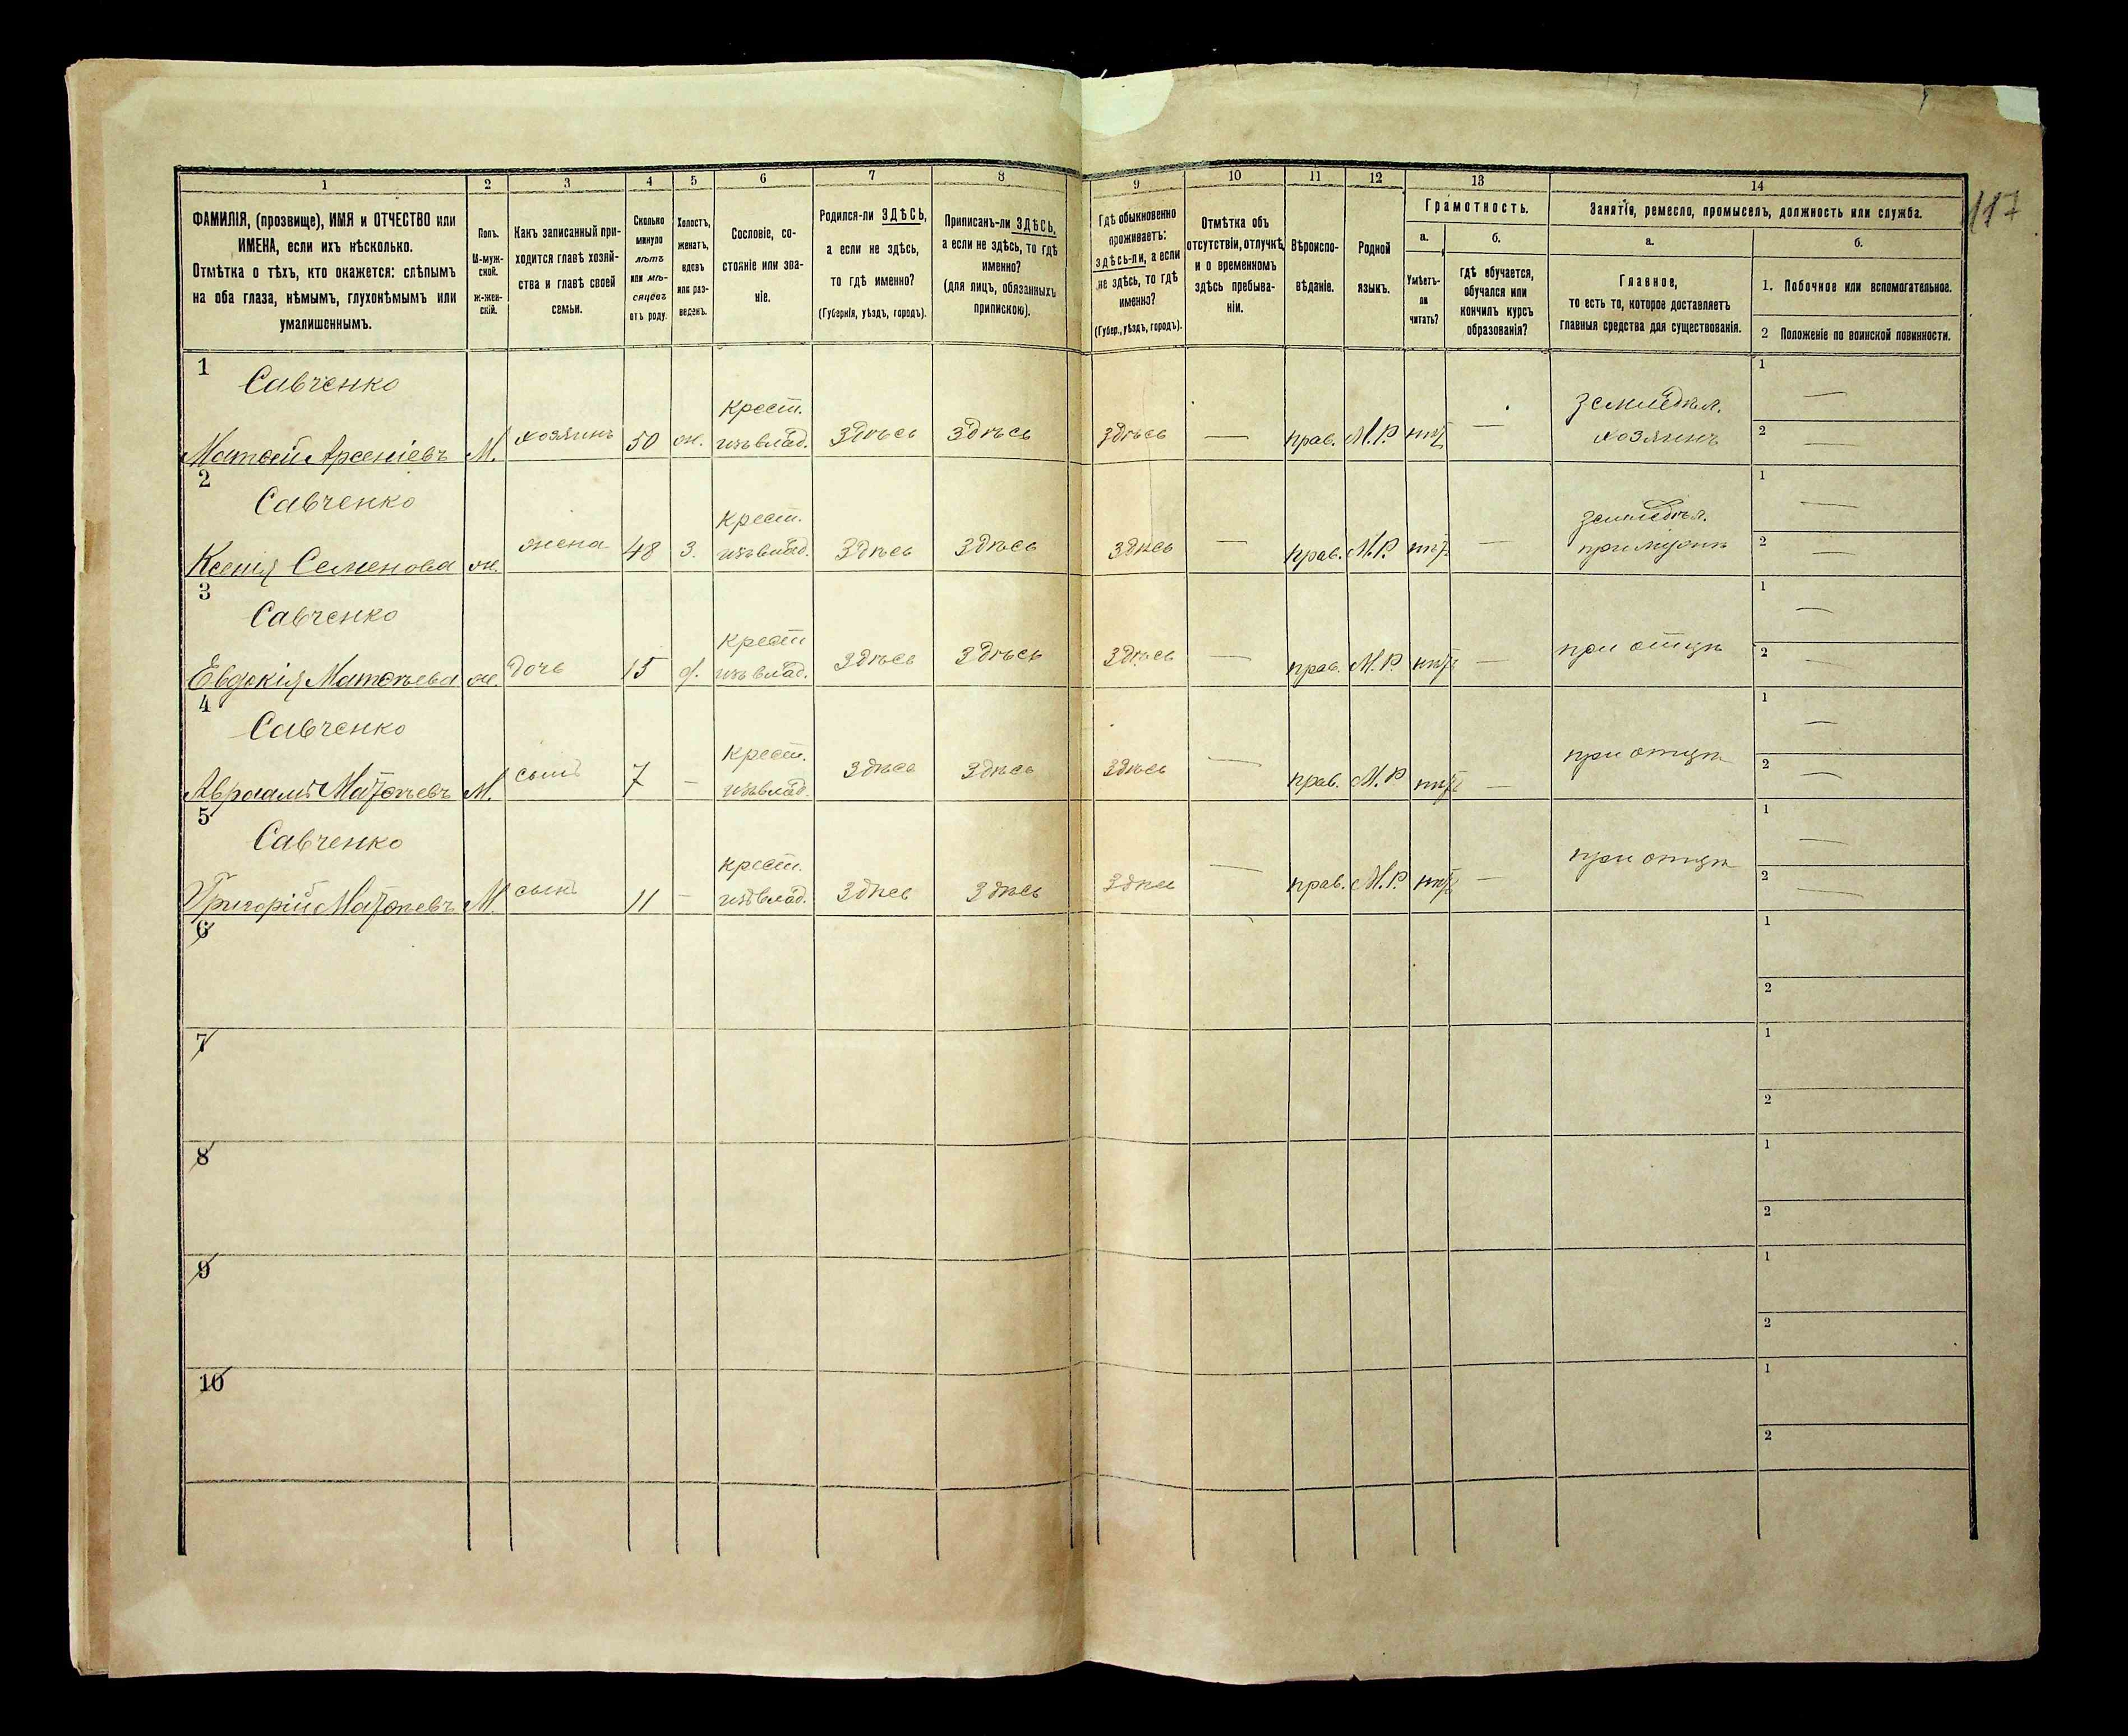 1 2 3 4 5 6 7 8 9 10 11 12 13 14
117
ФАМИЛІЯ, (прозвище), ИМЯ и ОТЧЕСТВО или
ИМЕНА, если ихъ нѣсколько.
Отмѣтка о тѣхъ, кто окажется: слѣпымъ
на оба глаза, нѣмымъ, глухонѣмымъ или
умалишеннымъ.
Полъ.
М-муж-
ской.
ж-жен-
скій.
Какъ записанный при-
ходится главѣ хозяй-
ства и главѣ своей
семьи.
Сколько
минуло
лѣтъ
или мѣ-
сяцевъ
отъ роду.
Холостъ,
женатъ,
вдовъ
или раз-
веденъ.
Сословіе, со-
стояніе или зва-
ніе.
Родился-ли ЗДѢСЬ,
а если не здѣсь,
то гдѣ именно?
(Губернія, уѣздъ, городъ).
Приписанъ-ли ЗДѢСЬ,
а если не здѣсь, то гдѣ
именно?
(для лицъ, обязанныхъ
припискою).
Гдѣ обыкновенно
проживаетъ:
здѣсь-ли, а если
не здѣсь, то гдѣ
именно?
(Губер., уѣздъ, городъ).
Отмѣтка объ
отсутствіи, отлучкѣ
и о временномъ
здѣсь пребыва-
ніи.
Вѣроиспо-
вѣданіе.
Родной
языкъ.
Грамотность.
а.
Умѣетъ-
ли
читать?
б.
гдѣ обучается,
обучался или
кончилъ курсъ
образованія?
Занятіе, ремесло, промыселъ, должность или служба.
а.
Главное,
то есть то, которое доставляетъ
главныя средства для существованія.
б.
1. Побочное или вспомогательное.
2 Положеніе по воинской повинности.
1 Савченко крест. земледѣл. 1 —
Матвей Арсеніевъ М. хозяинъ 50 ж. изъ влад. Здѣсь Здѣсь Здѣсь — прав. М.Р. нѣтъ — хозяинъ 2 —
2 Савченко крест. земледѣл. 1 —
Ксенія Семенова ж. жена 48 З. изъ влад. Здѣсь Здѣсь Здѣсь — прав. М.Р. нѣтъ — при мужѣ 2 —
3 Савченко крест 1 —
Евдокія Матвѣева ж. дочь 15 д. изъ влад. Здѣсь Здѣсь Здѣсь — прав. М.Р. нѣтъ — при отцѣ 2 —
4 Савченко крест. 1 —
Авраамъ Матвѣевъ М. сынъ 7 — изъ влад. Здѣсь Здѣсь Здѣсь — прав. М.Р нѣтъ — при отцѣ 2 —
5 Савченко крест. 1 —
Григорій Матвѣевъ М. сынъ 11 — изъ влад. Здѣсь Здѣсь Здѣсь — прав. М.Р. нѣтъ — при отцѣ 2 —
6 1
2
7 1
2
8 1
2
9 1
2
10 1
2